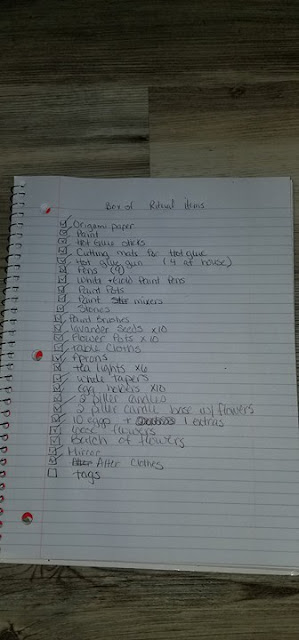 Box of Ritual items
Origami paper
Paint
Hot Glue sticks
Cutting mats for Hot glue
Hot glue gun (4 at house)
Pens (9)
White + Gold Paint Pens
Paint Pots
Paint mixers
Stones
Paint Brushes
lavander Seeds x10
Flower Pots x10
table Cloths
Aprons
tea lights x6
white tapers
x10
2 piller candles
2 piller candle base w/ flowers
10 + 1 extras
loose flowers
Bunch of flowers
Mirror
After Clothes
tags